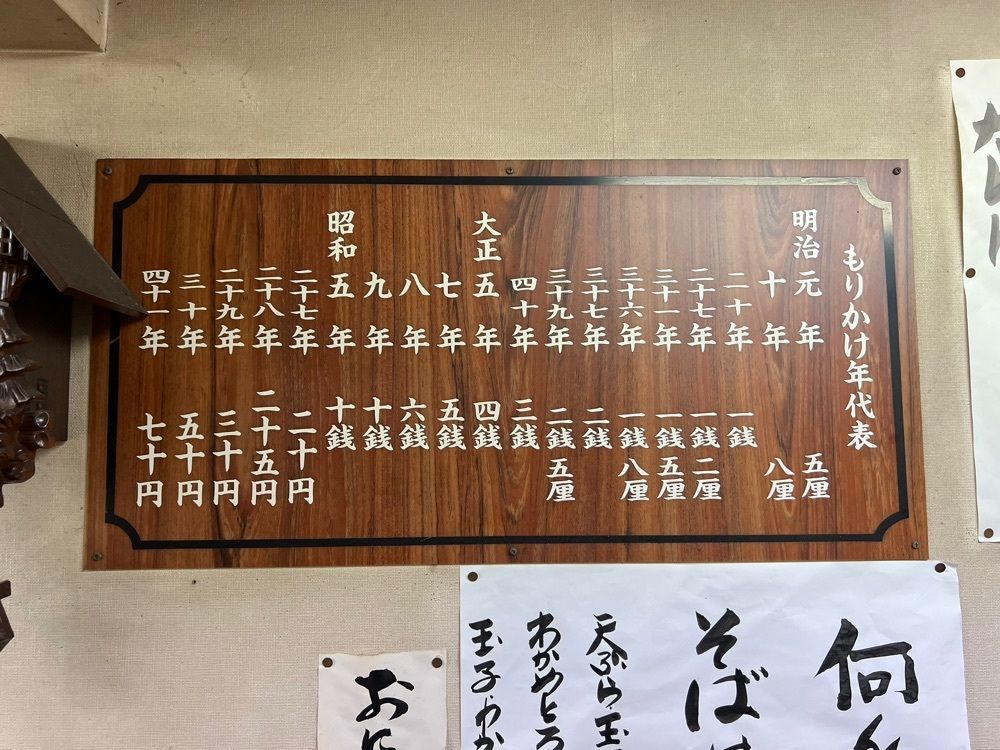 もりかけ年代表
明治元年 五厘
十年 八厘
二十年 一銭
二十七年 一銭二厘
三十一年 一銭五厘
三十六年 一銭八厘
三十七年 二銭
三十九年 二銭五厘
四十年 三銭
大正五年 四銭
七年 五銭
八年 六銭
九年 十銭
昭和五年 十銭
二十七年 二十円
二十八年 二十五円
二十九年 三十円
三十年 五十円
四十一年 七十円
何
そば
天ぷら玉
わかめとろ
玉子わか
おに